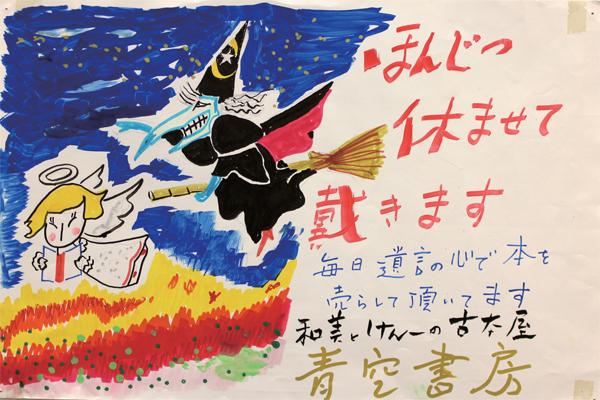 ほんじつ
休ませて
戴きます
毎日遺言の心で本を
売らして頂いてます
和美とけん一の古本屋
青空書房